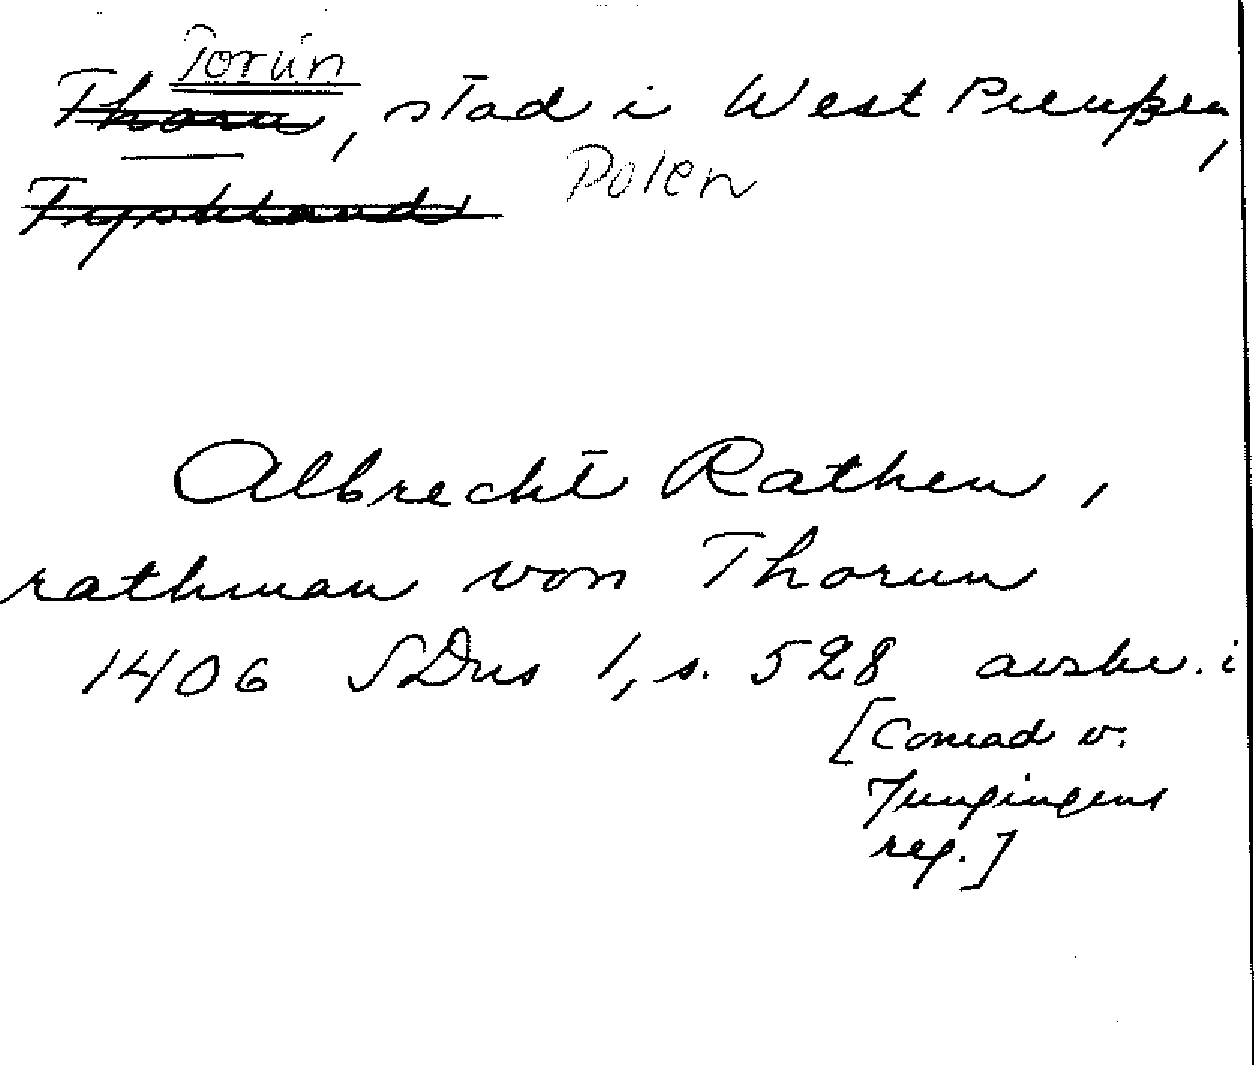 Torún
Thorn, stad i West Preußen,
Tyskland Polen
Albrecht Rathen,
rathman von Thorun
1406 SDns 1, s. 528 avskr. i
[Conrad v.
Jungingens
reg.]